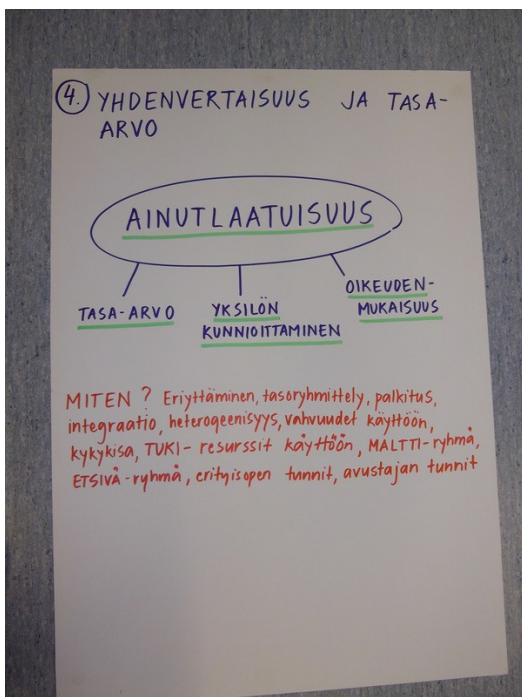 4. YHDENVERTAISUUS JA TASA-
ARVO
AINUTLAATUISUUS
TASA-ARVO
YKSILÖN
KUNNIOITTAMINEN
OIKEUDEN-
MUKAISUUS
MITEN? Eriyttäminen, tasoryhmittely, palkitus,
integraatio, heterogeenisyys, vahvuudet käyttöön,
kykykisa, TUKI-resurssit käyttöön, MALTTI-ryhmä,
ETSIVÄ-ryhmä, erityisopen tunnit, avustajan tunnit